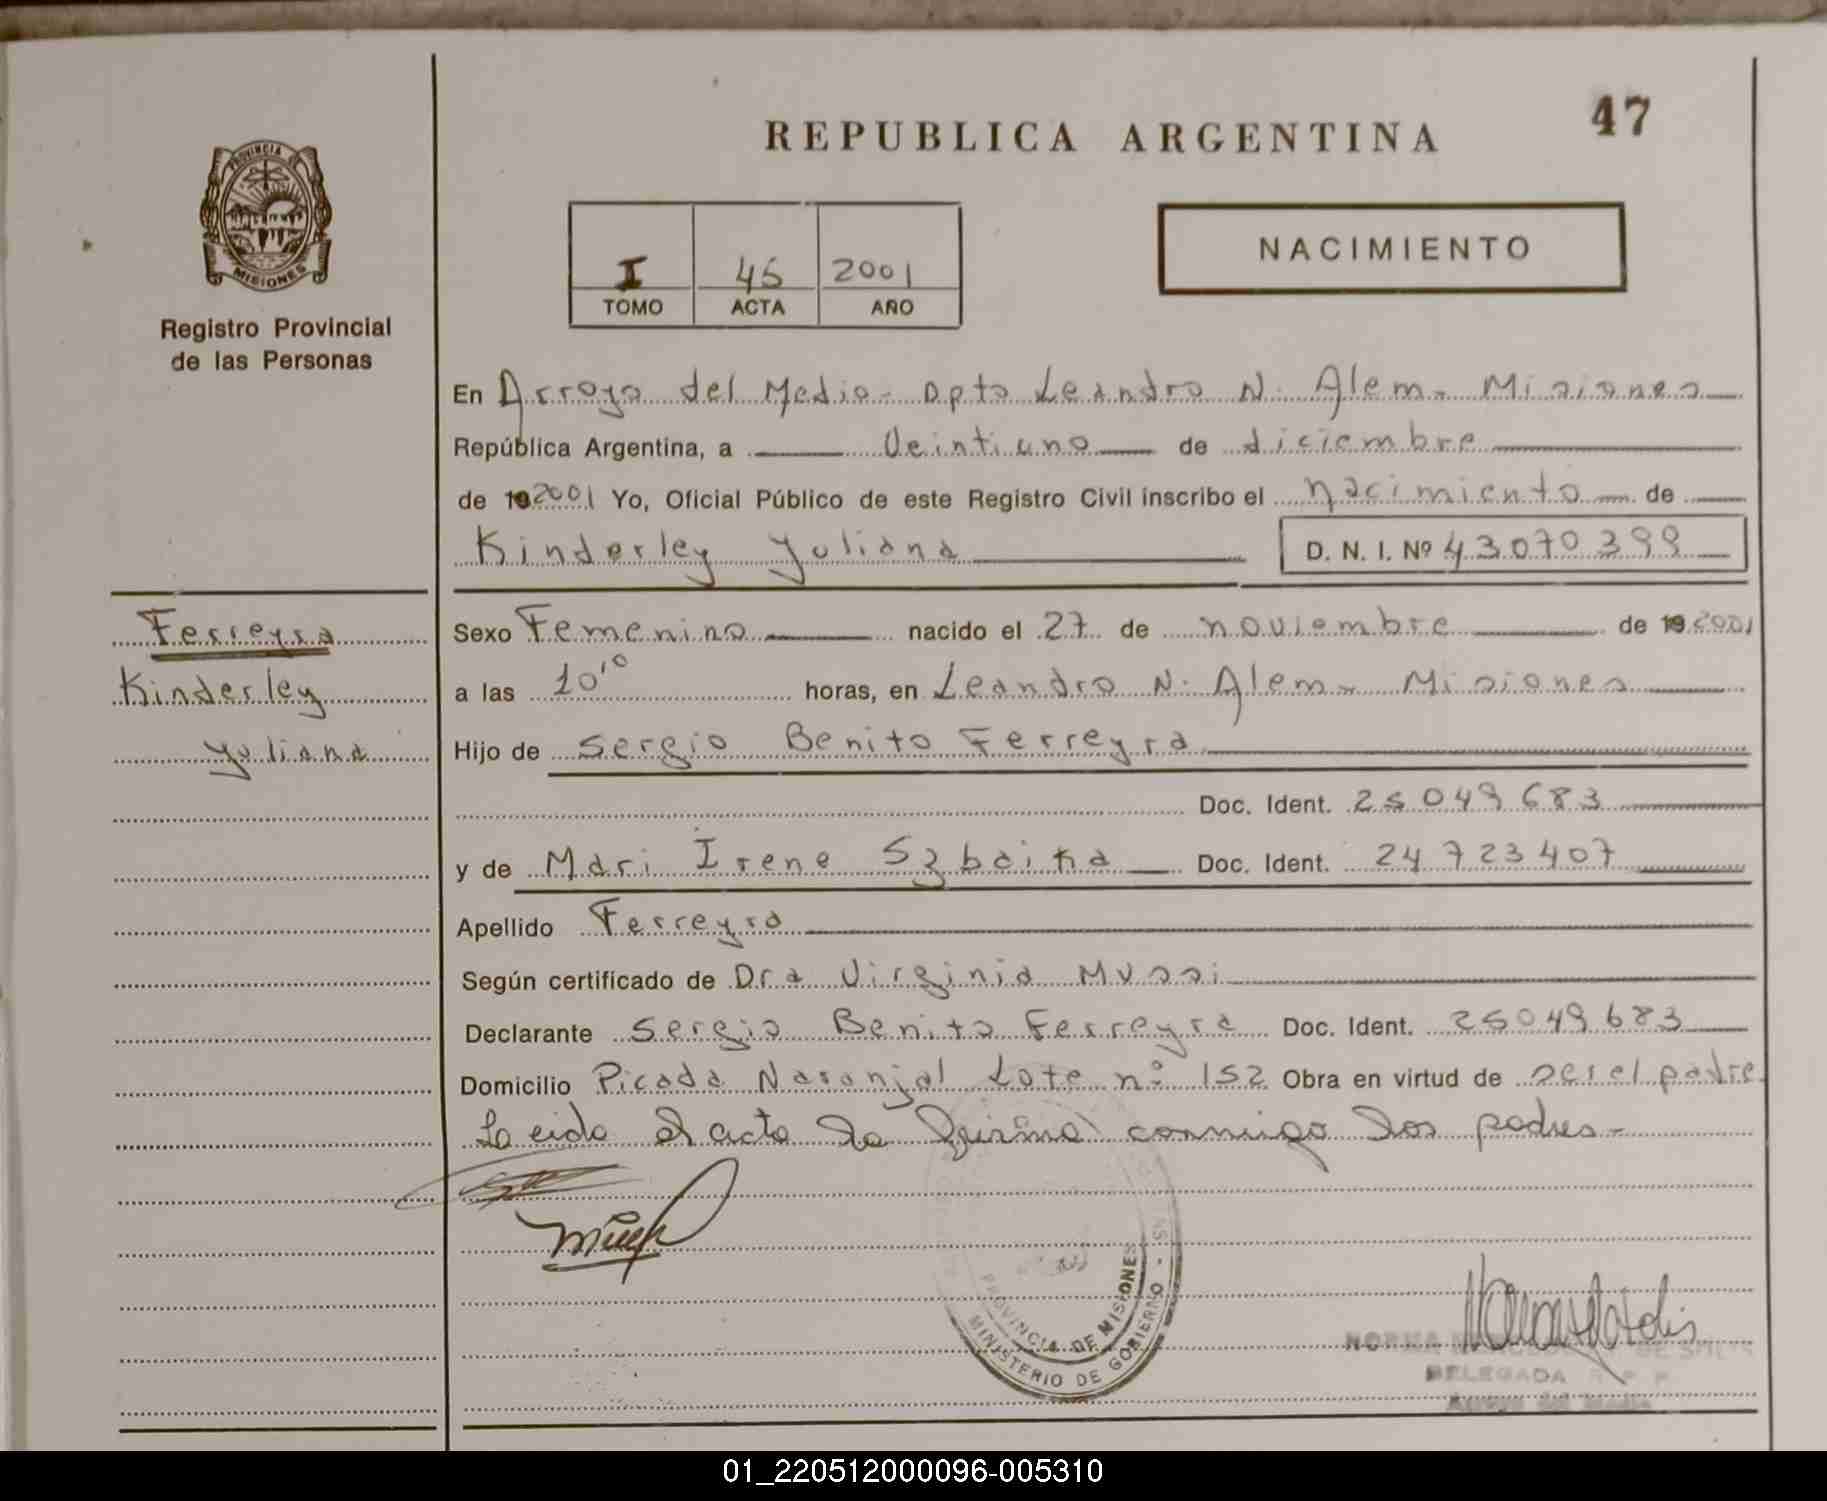 47
REPUBLICA ARGENTINA
PROVINCIA DE
MISIONES
Registro Provincial
de las Personas
I 45 2001
TOMO ACTA AÑO
NACIMIENTO
En Arroyo del Medio - Dpto Leandro N. Alem - Misiones
República Argentina, a Veintiuno de diciembre
de 19 2001 Yo, Oficial Público de este Registro Civil inscribo el nacimiento de
Kinderley Yuliana D. N. I. Nº 43070399
Ferreyra
Kinderley
Yuliana
Sexo Femenino nacido el 27 de noviembre de 19 2001
a las 10'⁰ horas, en Leandro N. Alem - Misiones
Hijo de Sergio Benito Ferreyra
Doc. Ident. 25049683
y de Mari Irene Szbaika Doc. Ident. 24723407
Apellido Ferreyra
Según certificado de Dra Virginia Mussi
Declarante Sergio Benito Ferreyra Doc. Ident. 25049683
Domicilio Picada Naranjal Lote nº 152 Obra en virtud de ser el padre
Leida el acta la firma conmigo los padres -
PROVINCIA DE MISIONES
MINISTERIO DE GOBIERNO
NORMA
DELEGADA R. P. P.
Arroyo del Medio
01_220512000096-005310